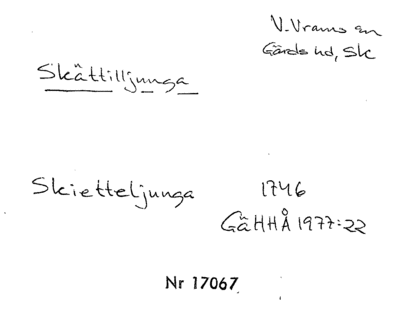 V. Vrams sn
Gärds hd, Sk
Skättilljunga
Skietteljunga 1746
GäHHÅ 1977:22
Nr 17067